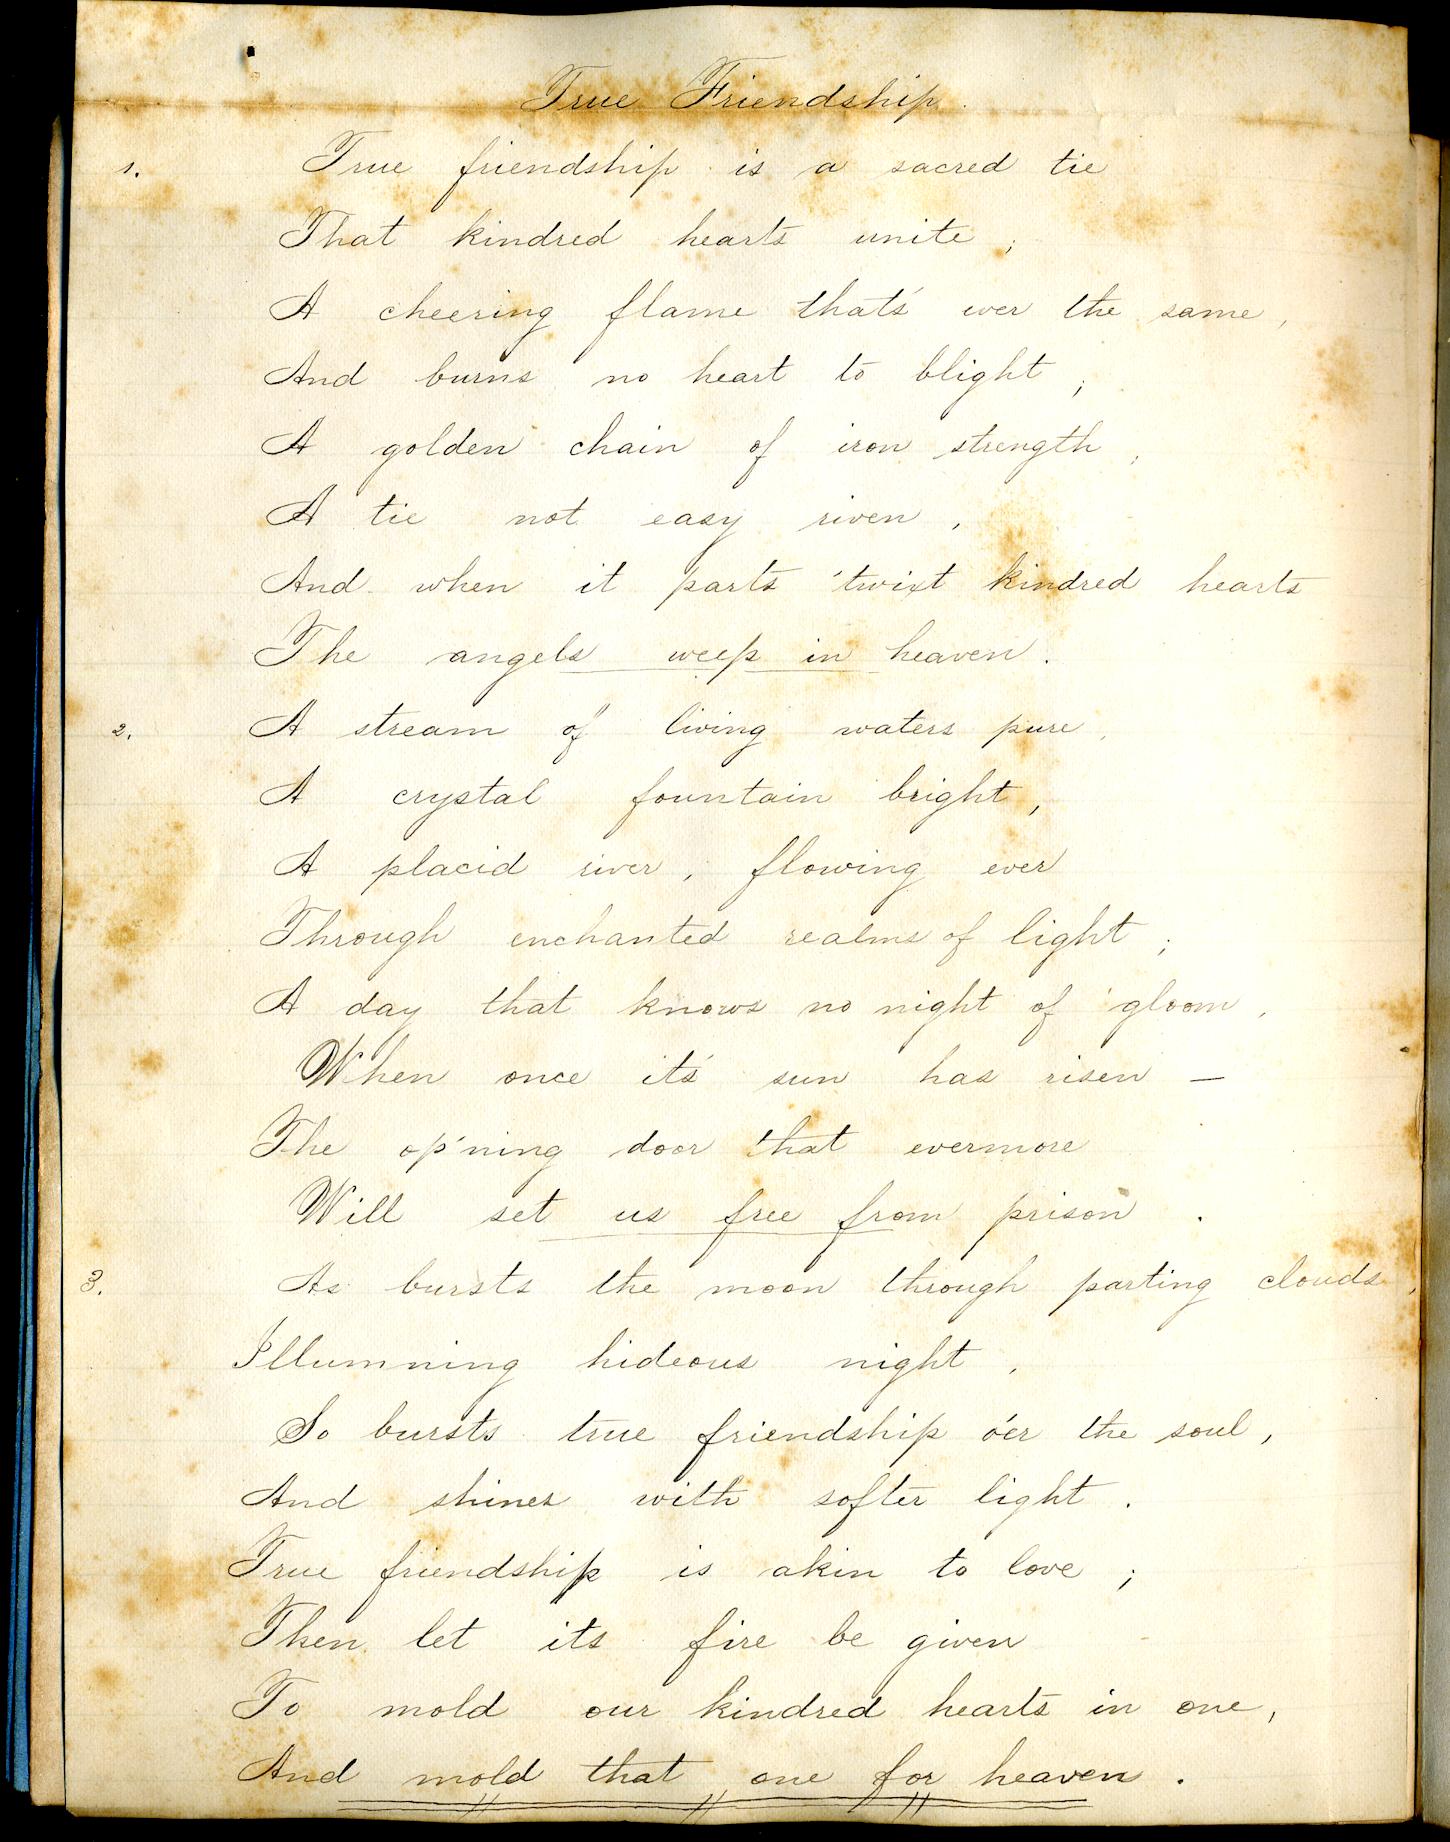 True Friendship.
1. True friendship is a sacred tie
That kindred hearts unite;
A cheering flame that's ever the same,
And burns no heart to blight;
A golden chain of iron strength,
A tie not easy riven,
And when it parts 'twixt kindred hearts
The angels weep in heaven.
2. A stream of living waters pure,
A crystal fountain bright,
A placid river, flowing ever
Through enchanted realms of light;
A day that knows no night of gloom,
When once it's sun has risen —
The op'ning door that evermore
Will set us free from prison.
3. As bursts the moon through parting clouds,
Illumning hideous night,
So bursts true friendship o'er the soul,
And shines with softer light.
True friendship is akin to love;
Then let its fire be given
To mold our kindred hearts in one,
And mold that one for heaven.